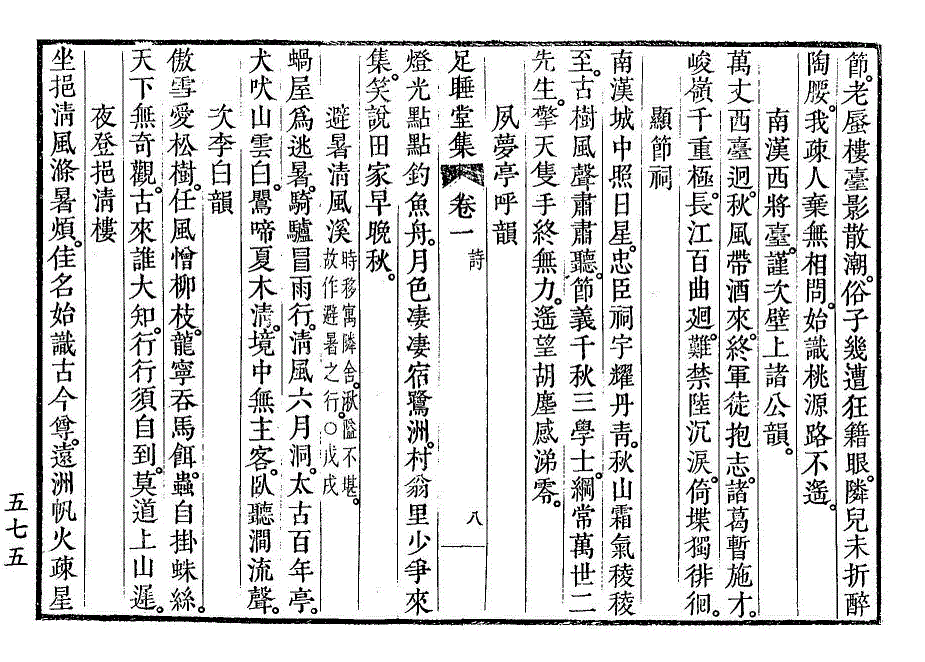 節。老蜃樓臺影散潮。俗子幾遭狂籍眼。隣兒未折醉
陶腰。我疎人棄無相問。始識桃源路不遙。
南漢西將臺。謹次壁上諸公韻。
萬丈西臺迥。秋風帶酒來。終軍徒抱志。諸葛暫施才。
峻嶺千重極。長江百曲廻。難禁陸沉淚。倚堞獨徘徊。
顯節祠
南漢城中照日星。忠臣祠宇耀丹靑。秋山霜氣稜稜
至。古樹風聲肅肅聽。節義千秋三學士。綱常萬世二
先生。擎天隻手終無力。遙望胡塵感涕零。
夙夢亭呼韻
足睡堂集 卷一 詩 八
燈光點點釣魚舟。月色凄凄宿鷺洲。村翁里少爭來
集。笑說田家早晩秋。
避暑淸風溪 時移寓隣舍。湫隘不堪。
故作避暑之行。○戊戌
蝸屋爲逃暑。騎驢冒雨行。淸風六月洞。太古百年亭。
犬吠山雲白。鸎啼夏木淸。境中無主客。臥聽澗流聲。
次李白韻
傲雪愛松樹。任風憎柳枝。龍寧呑馬餌。蟲自掛蛛絲。
天下無奇觀。古來誰大知。行行須自到。莫道上山遲。
夜登挹淸樓
坐挹淸風滌暑煩。佳名始識古今尊。遠洲帆火疎星
五七五